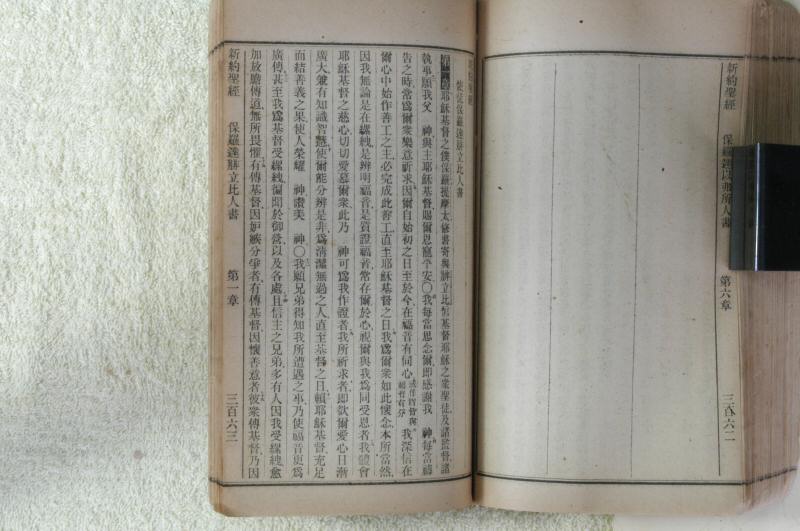 新約聖經　保羅達以弗所人書　第六章　三百六二
新約聖經
使徒保羅達腓立比人書
第一章耶穌基督之僕保羅提摩太修書寄與腓立比信基督耶穌之衆聖徒及諸監督諸
執事願我父　神與主耶穌基督賜爾恩寵平安〇我每當思念爾即感謝我　神每當禱
告之時常爲爾衆樂意祈求因爾自始初之日至於今在福音有同心　我深信在
爾心中始作善工之主必完成此善工直至耶穌基督之日我爲爾衆如此懷念本所當然
因我無論是在縲絏是辨明福音是質證福音常存爾於心視爾與我爲同受恩者我體會
耶穌基督之慈心切切愛慕爾衆此乃　神可爲我作證者我所祈求者即欲爾愛心日漸
廣大兼有知識智慧使爾能分辨是非爲清潔無過之人直至基督之日賴耶穌基督充足
而結善義之果使人榮耀　神讚美　神〇我願兄弟得知我所遭遇之事乃使福音更爲
廣傳甚至我爲基督受縲絏徧聞於御營以及各處且信主之兄弟多有人因我受縲絏愈
加放膽傳道無所畏懼有傳基督因妒嫉分爭者有傳基督因懷善意者彼衆傳基督乃因
新約聖經　保羅達腓立比人書　第一章　三百六三